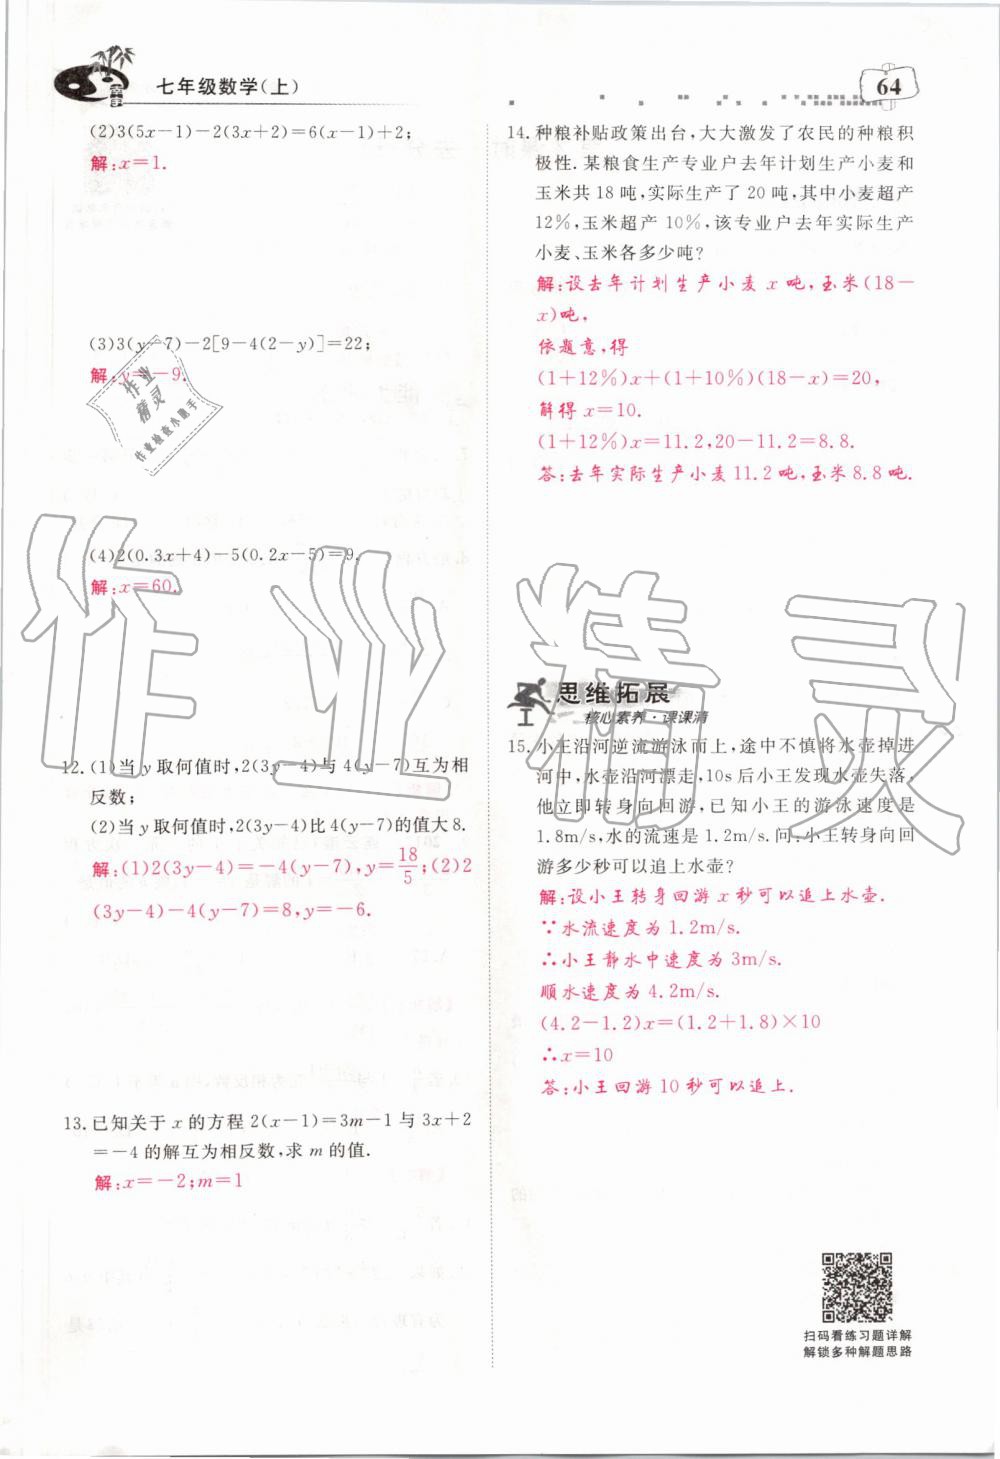 七年级数学(上)
64
(2)3(5x-1)-2(3x+2)=6(x-1)+2;
解:x=1.
(3)3(y-7)-2[9-4(2-y)]=22;
解:y=-9.
作业
精灵
作业检查小助手
(4)2(0.3x+4)-5(0.2x-5)=9.
解:x=60.
作业精灵
12.(1)当y取何值时,2(3y-4)与4(y-7)互为相
反数;
(2)当y取何值时,2(3y-4)比4(y-7)的值大8.
解:(1)2(3y-4)=-4(y-7),y=18/5;(2)2
(3y-4)-4(y-7)=8,y=-6.
13.已知关于x的方程2(x-1)=3m-1与3x+2
=-4的解互为相反数,求m的值.
解:x=-2;m=1
14.种粮补贴政策出台,大大激发了农民的种粮积
极性.某粮食生产专业户去年计划生产小麦和
玉米共18吨,实际生产了20吨,其中小麦超产
12%,玉米超产10%,该专业户去年实际生产
小麦、玉米各多少吨?
解:设去年计划生产小麦x吨,玉米(18-
x)吨,
依题意,得
(1+12%)x+(1+10%)(18-x)=20,
解得x=10.
(1+12%)x=11.2,20-11.2=8.8.
答:去年实际生产小麦11.2吨,玉米8.8吨.
思维拓展
核心素养·课课清
15.小王沿河逆流游泳而上,途中不慎将水壶掉进
河中,水壶沿河漂走,10s后小王发现水壶失落,
他立即转身向回游,已知小王的游泳速度是
1.8m/s,水的流速是1.2m/s.问:小王转身向回
游多少秒可以追上水壶?
解:设小王转身回游x秒可以追上水壶.
∵水流速度为1.2m/s.
∴小王静水中速度为3m/s.
顺水速度为4.2m/s.
(4.2-1.2)x=(1.2+1.8)×10
∴x=10
答:小王回游10秒可以追上.
扫码看练习题详解
解锁多种解题思路